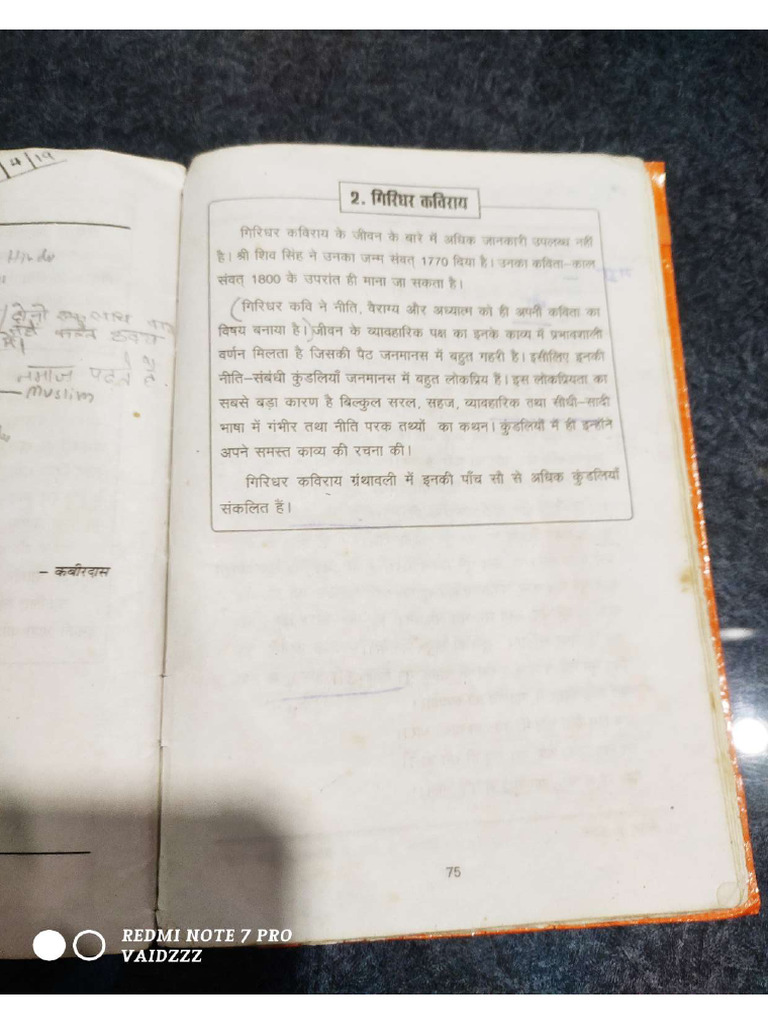 4/19
Hindu
नमाज पढ़ते है
Muslim
– कबीरदास
2. गिरिधर कविराय
गिरिधर कविराय के जीवन के बारे में अधिक जानकारी उपलब्ध नहीं
है। श्री शिव सिंह ने उनका जन्म संवत् 1770 दिया है। उनका कविता–काल
संवत् 1800 के उपरांत ही माना जा सकता है।
(गिरिधर कवि ने नीति, वैराग्य और अध्यात्म को ही अपनी कविता का
विषय बनाया है।)जीवन के व्यावहारिक पक्ष का इनके काव्य में प्रभावशाली
वर्णन मिलता है जिसकी पैठ जनमानस में बहुत गहरी है। इसीलिए इनकी
नीति–संबंधी कुंडलियाँ जनमानस में बहुत लोकप्रिय हैं। इस लोकप्रियता का
सबसे बड़ा कारण है बिल्कुल सरल, सहज, व्यावहारिक तथा सीधी–सादी
भाषा में गंभीर तथा नीति परक तथ्यों का कथन। कुंडलियों में ही इन्होंने
अपने समस्त काव्य की रचना की।
गिरिधर कविराय ग्रंथावली में इनकी पाँच सौ से अधिक कुंडलियाँ
संकलित हैं।
75
REDMI NOTE 7 PRO
VAIDZZZ